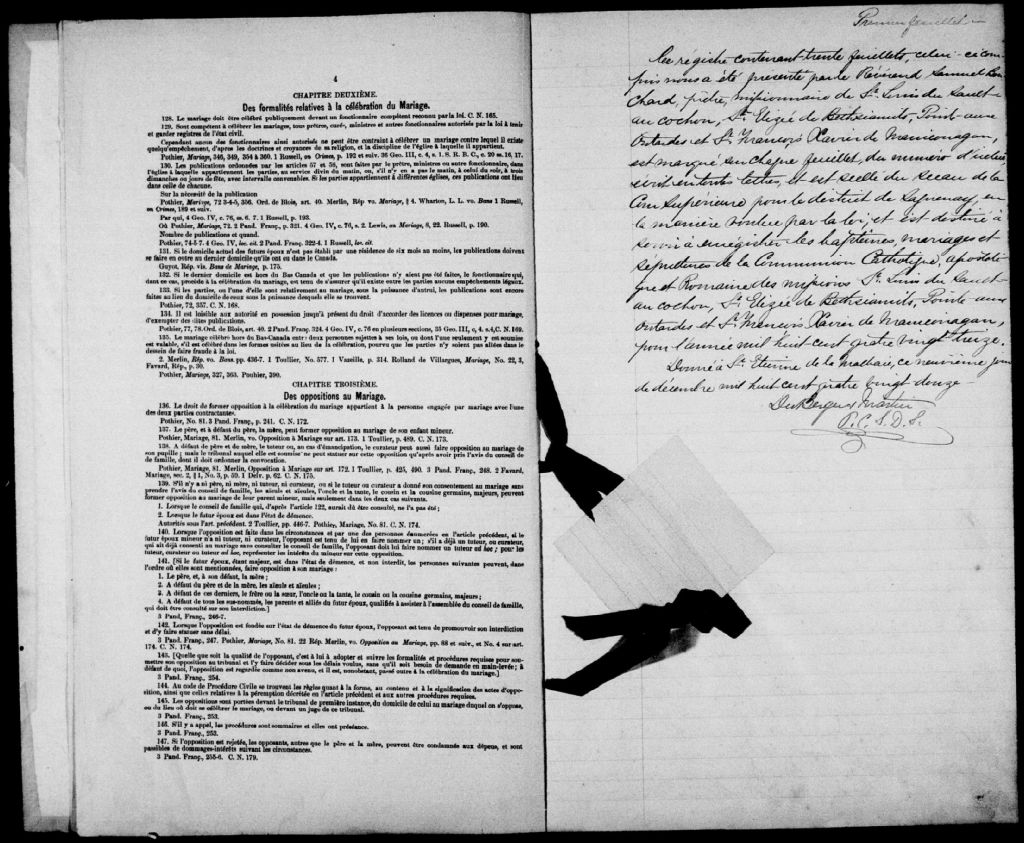 4
CHAPITRE DEUXIÈME.
Des formalités relatives à la célébration du Mariage.
128. Le mariage doit être célébré publiquement devant un fonctionnaire compétent reconnu par la loi. C. N. 165.
129. Sont compétents à célébrer les mariages, tous prêtres, curés, ministres et autres fonctionnaires autorisés par la loi à tenir
et garder registres de l'état civil.
Cependant aucun des fonctionnaires ainsi autorisés ne peut être contraint à célébrer un mariage contre lequel il existe
quelqu'empêchement, d'après les doctrines et croyances de sa religion, et la discipline de l'église à laquelle il appartient.
Pothier, Mariage, 346, 349, 354 à 360. 1 Russell, on Crimes, p. 192 et suiv. 36 Geo. III, c. 4, s. 1. S. R. B. C., c. 20 ss. 16, 17.
130. Les publications ordonnées par les articles 57 et 58, sont faites par le prêtre, ministre ou autre fonctionnaire, dans
l'église à laquelle appartiennent les parties, au service divin du matin, ou, s'il n'y en a pas le matin, à celui du soir, à trois
dimanches ou jours de fête, avec intervalle convenables. Si les parties appartiennent à différentes églises, ces publications ont lieu
dans celle de chacune.
Sur la nécessité de la publication
Pothier, Mariage, 72 3-4-5, 356. Ord. de Blois, art. 40. Merlin, Rép vo. Mariage, § 4. Wharton, L. L. vo. Bans 1 Russell,
on Crimes, 189 et suiv.
Par qui, 4 Geo. IV, c. 76, ss. 6. 7. 1 Russell, p. 193.
Où Pothier, Mariage, 72. 2 Pand. Franç., p. 321. 4 Geo. IV, c. 76, s. 2. Lewis, on Mariage, 8, 22. Russell, p. 190.
Nombre de publications et quand.
Pothier, 74-5-7. 4 Geo. IV, loc. cit. 2 Pand. Franç. 322-4. 1 Russell, loc. cit.
131. Si le domicile actuel des futurs époux n'est pas établi par une résidence de six mois au moins, les publications doivent
se faire en outre au dernier domicile qu'ils ont eu dans le Canada.
Guyot, Rép. vis. Bans de Mariage, p. 175.
132. Si le dernier domicile est hors du Bas Canada et que les publications n'y aient pas été faites, le fonctionnaire qui,
dans ce cas, procède à la célébration du mariage, est tenu de s'assurer qu'il existe entre les parties aucuns empêchements légaux.
133. Si les parties, ou l'une d'elle sont relativement au mariage, sous la puissance d'autrui, les publications sont encore
faites au lieu du domicile de ceux sous la puissance desquels elle se trouvent.
Pothier, 72, 357. C. N. 168.
134. Il est loisible aux autorité en possession jusqu'à présent du droit d'accorder des licences ou dispenses pour mariage,
d'exempter des dites publications.
Pothier, 77, 78. Ord. de Blois, art. 40. 2 Pand. Franç. 324. 4 Geo. IV, c. 76 en plusieurs sections, 35 Geo. III, c, 4, s.4, C. N. 169.
135. Le mariage célébré hors du Bas-Canada entre deux personnes sujettes à ses lois, ou dont l'une seulement y est soumise
est valable, s'il est célébré dans les formes usitées au lieu de la célébration, pourvu que les parties n'y soient pas allées dans le
dessein de faire fraude à la loi.
2. Merlin, Rép. vo. Bans, pp. 436-7. 1 Toullier, No. 577. 1 Vazeille, p. 314. Rolland de Villargues, Mariage, No. 22, 3,
Favard, Rép., p. 30.
Pothier, Mariage, 327, 363. Pouhier, 390.
CHAPITRE TROISIÈME.
Des oppositions au Mariage.
136. Le droit de former opposition à la célébration du mariage appartient à la personne engagée par mariage avec l'une
des deux parties contractantes.
Pothier, No. 81. 3 Pand Franç., p. 241. C. N. 172.
137. Le père, et à défaut du père, la mère, peut former opposition au mariage de son enfant mineur.
Pothier, Mariage, 81. Merlin, vo. Opposition à Mariage sur art. 173. 1 Toullier, p. 489. C. N. 173.
138. A défaut de père et de mère, le tuteur ou, au cas d'émancipation, le curateur peut aussi faire opposition au mariage de
son pupille; mais le tribunal auquel elle est soumise ne peut statuer sur cette opposition qu'après avoir pris l'avis du conseil de
de famille, dont il doit ordonner la convocation.
Pothier, Mariage, 81. Merlin, Opposition à Mariage sur art. 172. 1 Toullier, p. 425, 490. 3 Pand. Franç., 248. 2 Favard,
Mariage, sec. 2, § 1, No. 3, p. 59. 1 Delv. p. 62. C. N. 175.
139. S'il n'y a ni père, ni mère, ni tuteur, ni curateur, ou si le tuteur ou curateur a donné son consentement au mariage sans
prendre l'avis du conseil de famille, les aïeuls et aïeules, l'oncle et la tante, le cousin et la cousine germains, majeurs, peuvent
former opposition au mariage de leur parent mineur, mais seulement dans les deux cas suivants.
1. Lorsque le conseil de famille qui, d'après l'article 122, aurait dû être consulté, ne l'a pas été;
2. Lorsque le futur époux est dans l'état de démence.
Autorités sous l'art. précédent. 2 Toullier, pp. 446-7. Pothier, Mariage, No. 81. C. N. 174.
140. Lorsque l'opposition est faite dans les circonstances et par une des personnes énumérées en l'article précédent, si le
futur époux mineur n'a ni tuteur, ni curateur, l'opposant est tenu de lui en faire nommer un; s'il a déjà un tuteur, ou curateur,
qui ait déjà consenti au mariage sans consulter le conseil de famille, l'opposant doit lui faire nommer un tuteur ad hoc; pour les
tuteur, curateur ou tuteur ad hoc, représenter les intérêts du mineur sur cette opposition.
141. [Si le futur époux, étant majeur, est dans l'état de démence, et non interdit, les personnes suivantes peuvent, dans
l'ordre où elles sont mentionnées, faire opposition à son mariage:
1. Le père, et, à son défaut, la mère;
2. A défaut du père et de la mère, les aïeuls et aïeules;
3. A défaut de ces derniers, le frère ou la sœur, l'oncle ou la tante, le cousin ou la cousine germains, majeurs;
4. A défaut de tous les sus-nommés, les parents et alliés du futur époux, qualifiés à assister à l'assemblée du conseil de famille,
qui doit être consulté sur son interdiction.]
3 Pand. Franç., 246-7.
142. Lorsque l'opposition est fondée sur l'état de démence du futur époux, l'opposant est tenu de promouvoir son interdiction
et d'y faire statuer sans délai.
3 Pand. Franç., 247. Pothier, Mariage, No. 81. 22 Rép. Merlin, vo. Opposition au Mariage, pp. 88 et suiv., et No. 4 sur art.
174. C. N. 174.
143. [Quelle que soit la qualité de l'opposant, c'est à lui à adopter et suivre les formalités et procédures requises pour sou-
mettre son opposition au tribunal et l'y faire décider sous les délais voulus, sans qu'il soit besoin de demande en main-levée; à
défaut de quoi, l'opposition est regardée comme non avenu, et il est, nonobstant, passé outre à la célébration du mariage.]
3 Pand. Franç., 254.
144. Au code de Procédure Civile se trouvent les règles quant à la forme, au contenu et à la signification des actes d'oppo-
sition, ainsi que celles relatives à la péremption décrétée en l'article précédent et aux autres procédures requises.
145. Les oppositions sont portées devant le tribunal de première instance, du domicile de celui au mariage duquel on s'oppose,
ou du lieu où doit se célébrer le mariage, ou devant un juge de ce tribunal.
3 Pand. Franç., 253.
146. S'il y a appel, les procédures sont sommaires et elles ont préséance.
3 Pand. Franç., 253.
147. Si l'opposition est rejetée, les opposants, autres que le père et la mère, peuvent être condamnés aux dépens, et sont
passibles de dommages-intérêts suivant les circonstances.
3 Pand. Franç., 255-6. C. N. 179.
Premier feuillet
Ce régistre contenant trente feuillets, celui-ci com-
pris nous a été présenté par le Révérend Samuel Bou-
chard, prêtre, missionnaire de St. Louis du Sault-
au cochon, St. Elizée de Bethsiamits, Pointe-aux
Outardes et St. Francois Xavier de Manicouagan,
est marqué sur chaque feuillet, du numéro d'icelui
écrit en toutes lettres, et est scellé du sceau de la
Cour Supérieure pour le district de Saguenay, en
la manière voulue par la loi, et est destiné à
servir à enregistrer les baptêmes, mariages et
sépultures de la Communion Catholique, apostoli-
que et Romaine des missions St. Louis du Sault-
au cochon, St. Elizée de Bethsiamits, Pointe-aux
Outardes et St. Francois Xavier de Manicouagan,
pour l'année mil huit cent quatre vingt treize.
Donné à St. Etienne de la Malbaie, ce neuvième jour
de décembre mil huit cent quatre vingt douze
P. C. S. D. S.